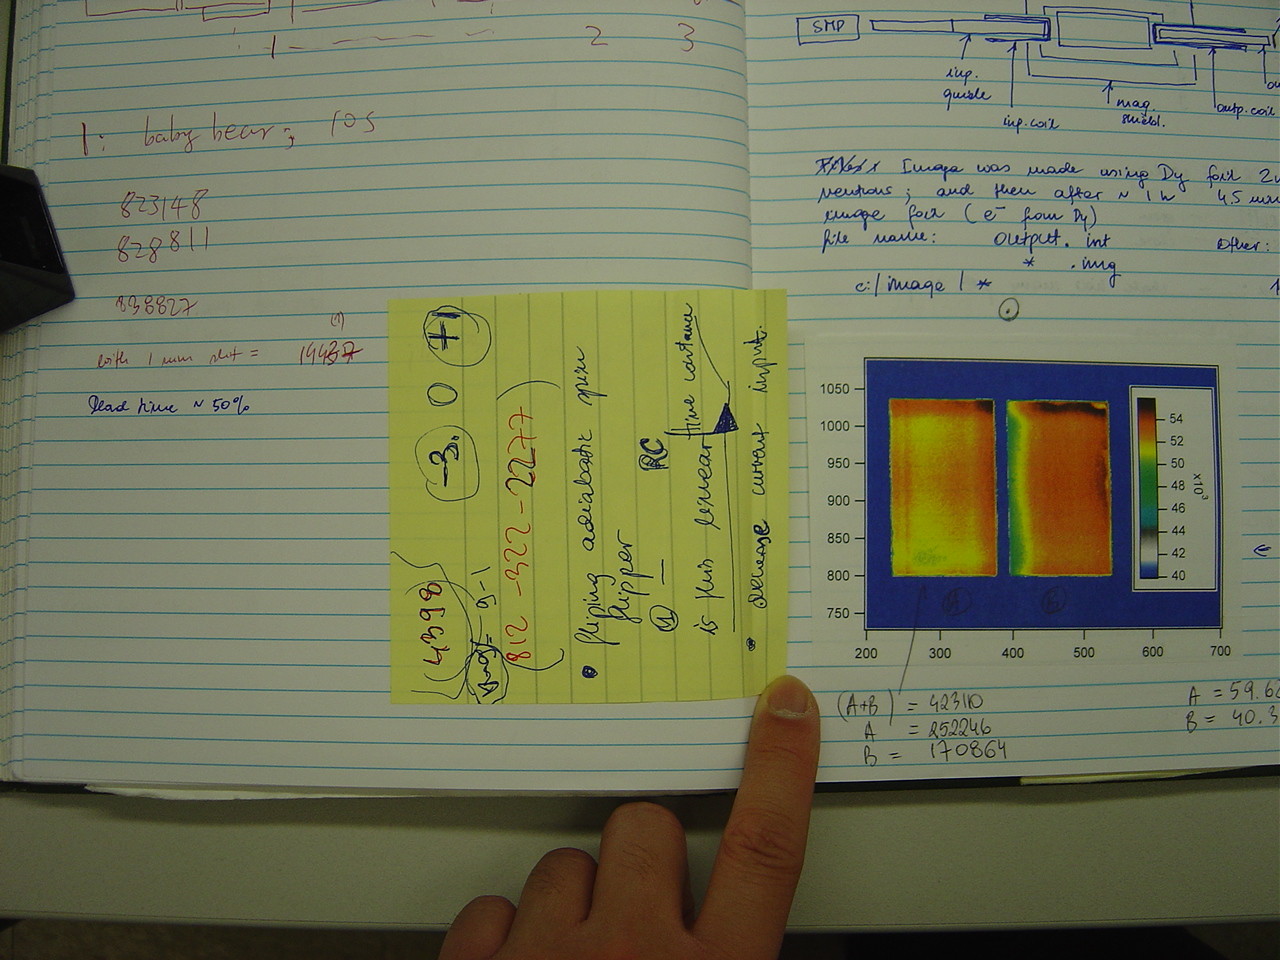 2 3
1: baby bear; 10s
823148
828811
838827
(1)
with 1 mm slit = 19437
Dead time ~ 50%
-3. 0 +1
(4398)
9-1
812-322-2277)
• fliping adiabatic spin
flipper
RC
is this linear time constance
• decrease current input.
SMP
inp. guide
inp. coil
mag. shield.
outp. coil
Image was made using Dy foil
neutrons; and then after ~ 1 h 4.5 min
image foil (e⁻ from Dy)
file name: output. int other:
* .img
c:/image/*
1050
1000
950
900
850
800
750
200 300 400 500 600 700
54
52
50
48
46
44
42
40
x10³
A B
(A+B) = 423110
A = 252246
B = 170864
A = 59.6
B = 40.3